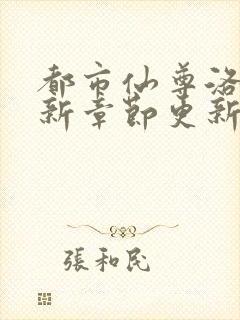 都市仙尊洛
新章節更新
張和民